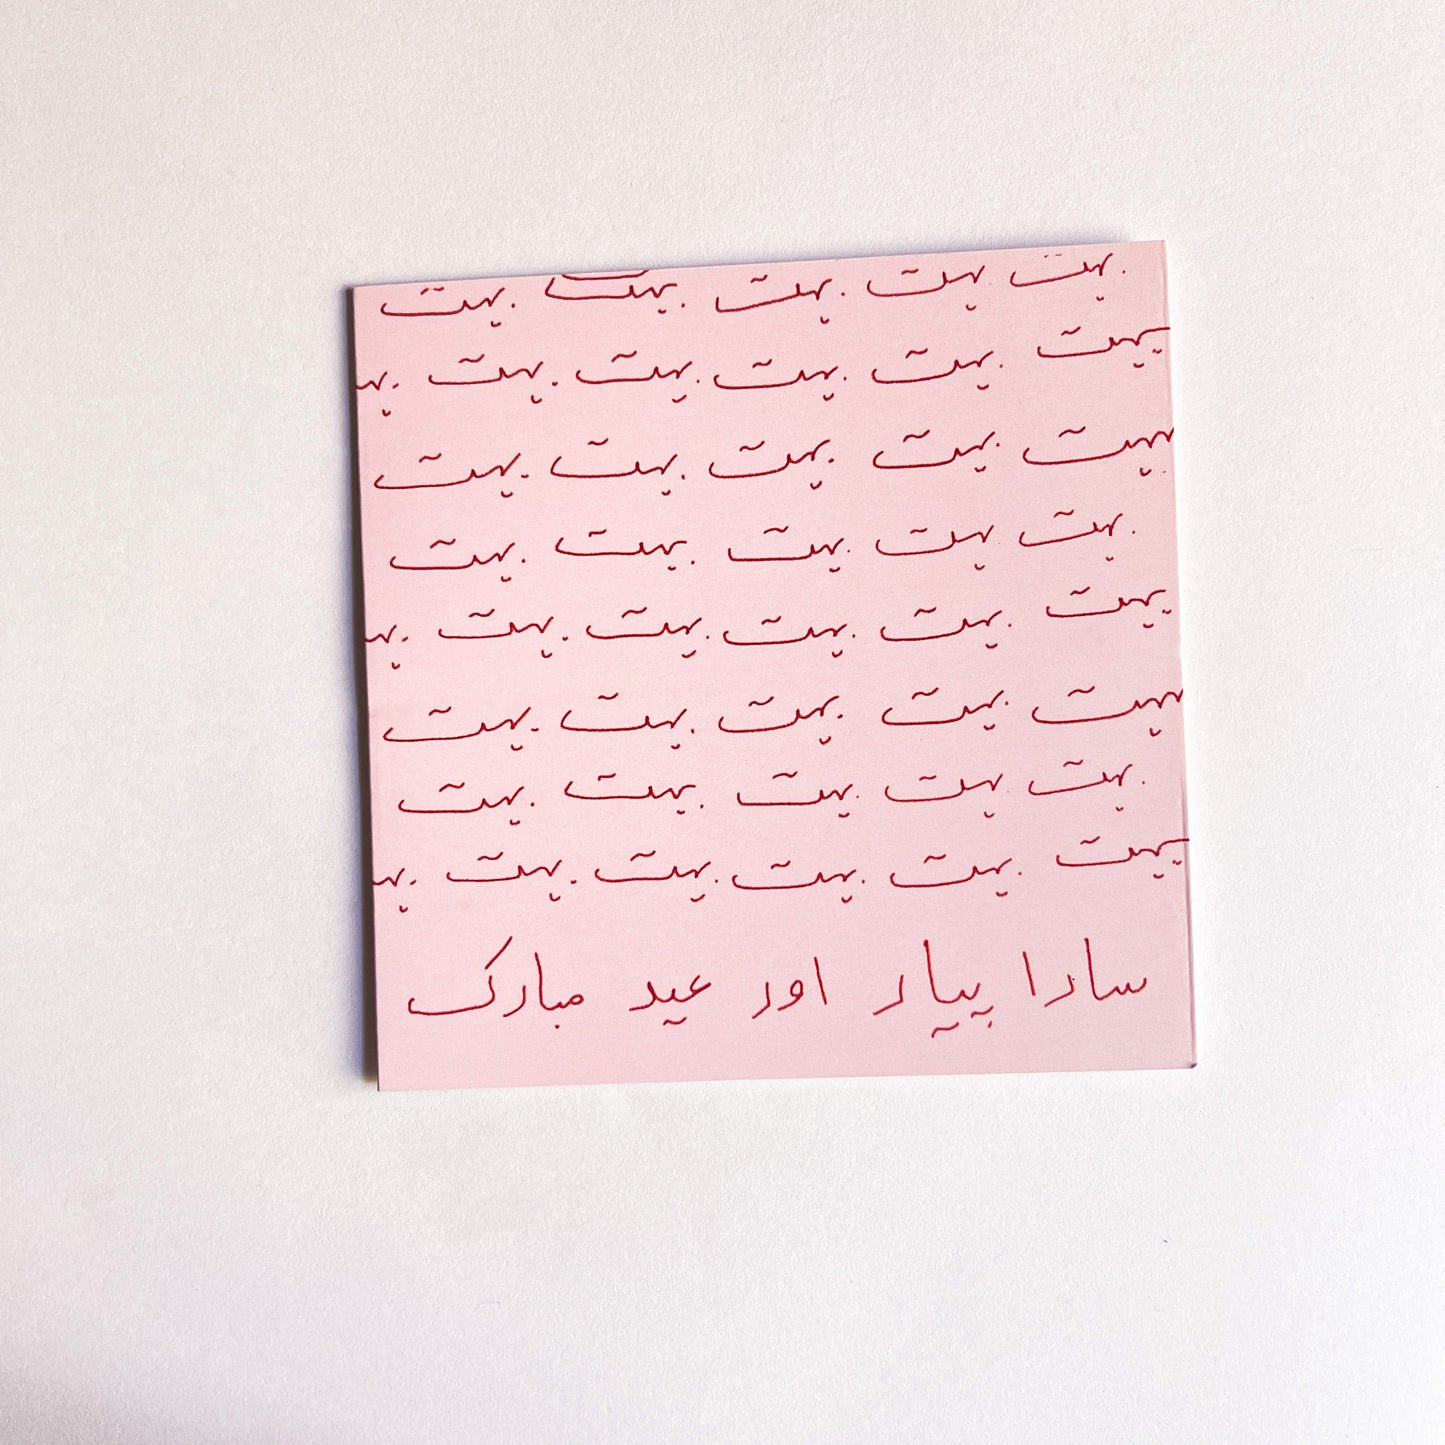 بہت بہت بہت بہت بہت
بہت بہت بہت بہت بہت بہ
بہت بہت بہت بہت بہت
بہت بہت بہت بہت بہت
بہت بہت بہت بہت بہت بہ
بہت بہت بہت بہت بہت
بہت بہت بہت بہت بہت
بہت بہت بہت بہت بہت بہ
سارا پیار اور عید مبارک